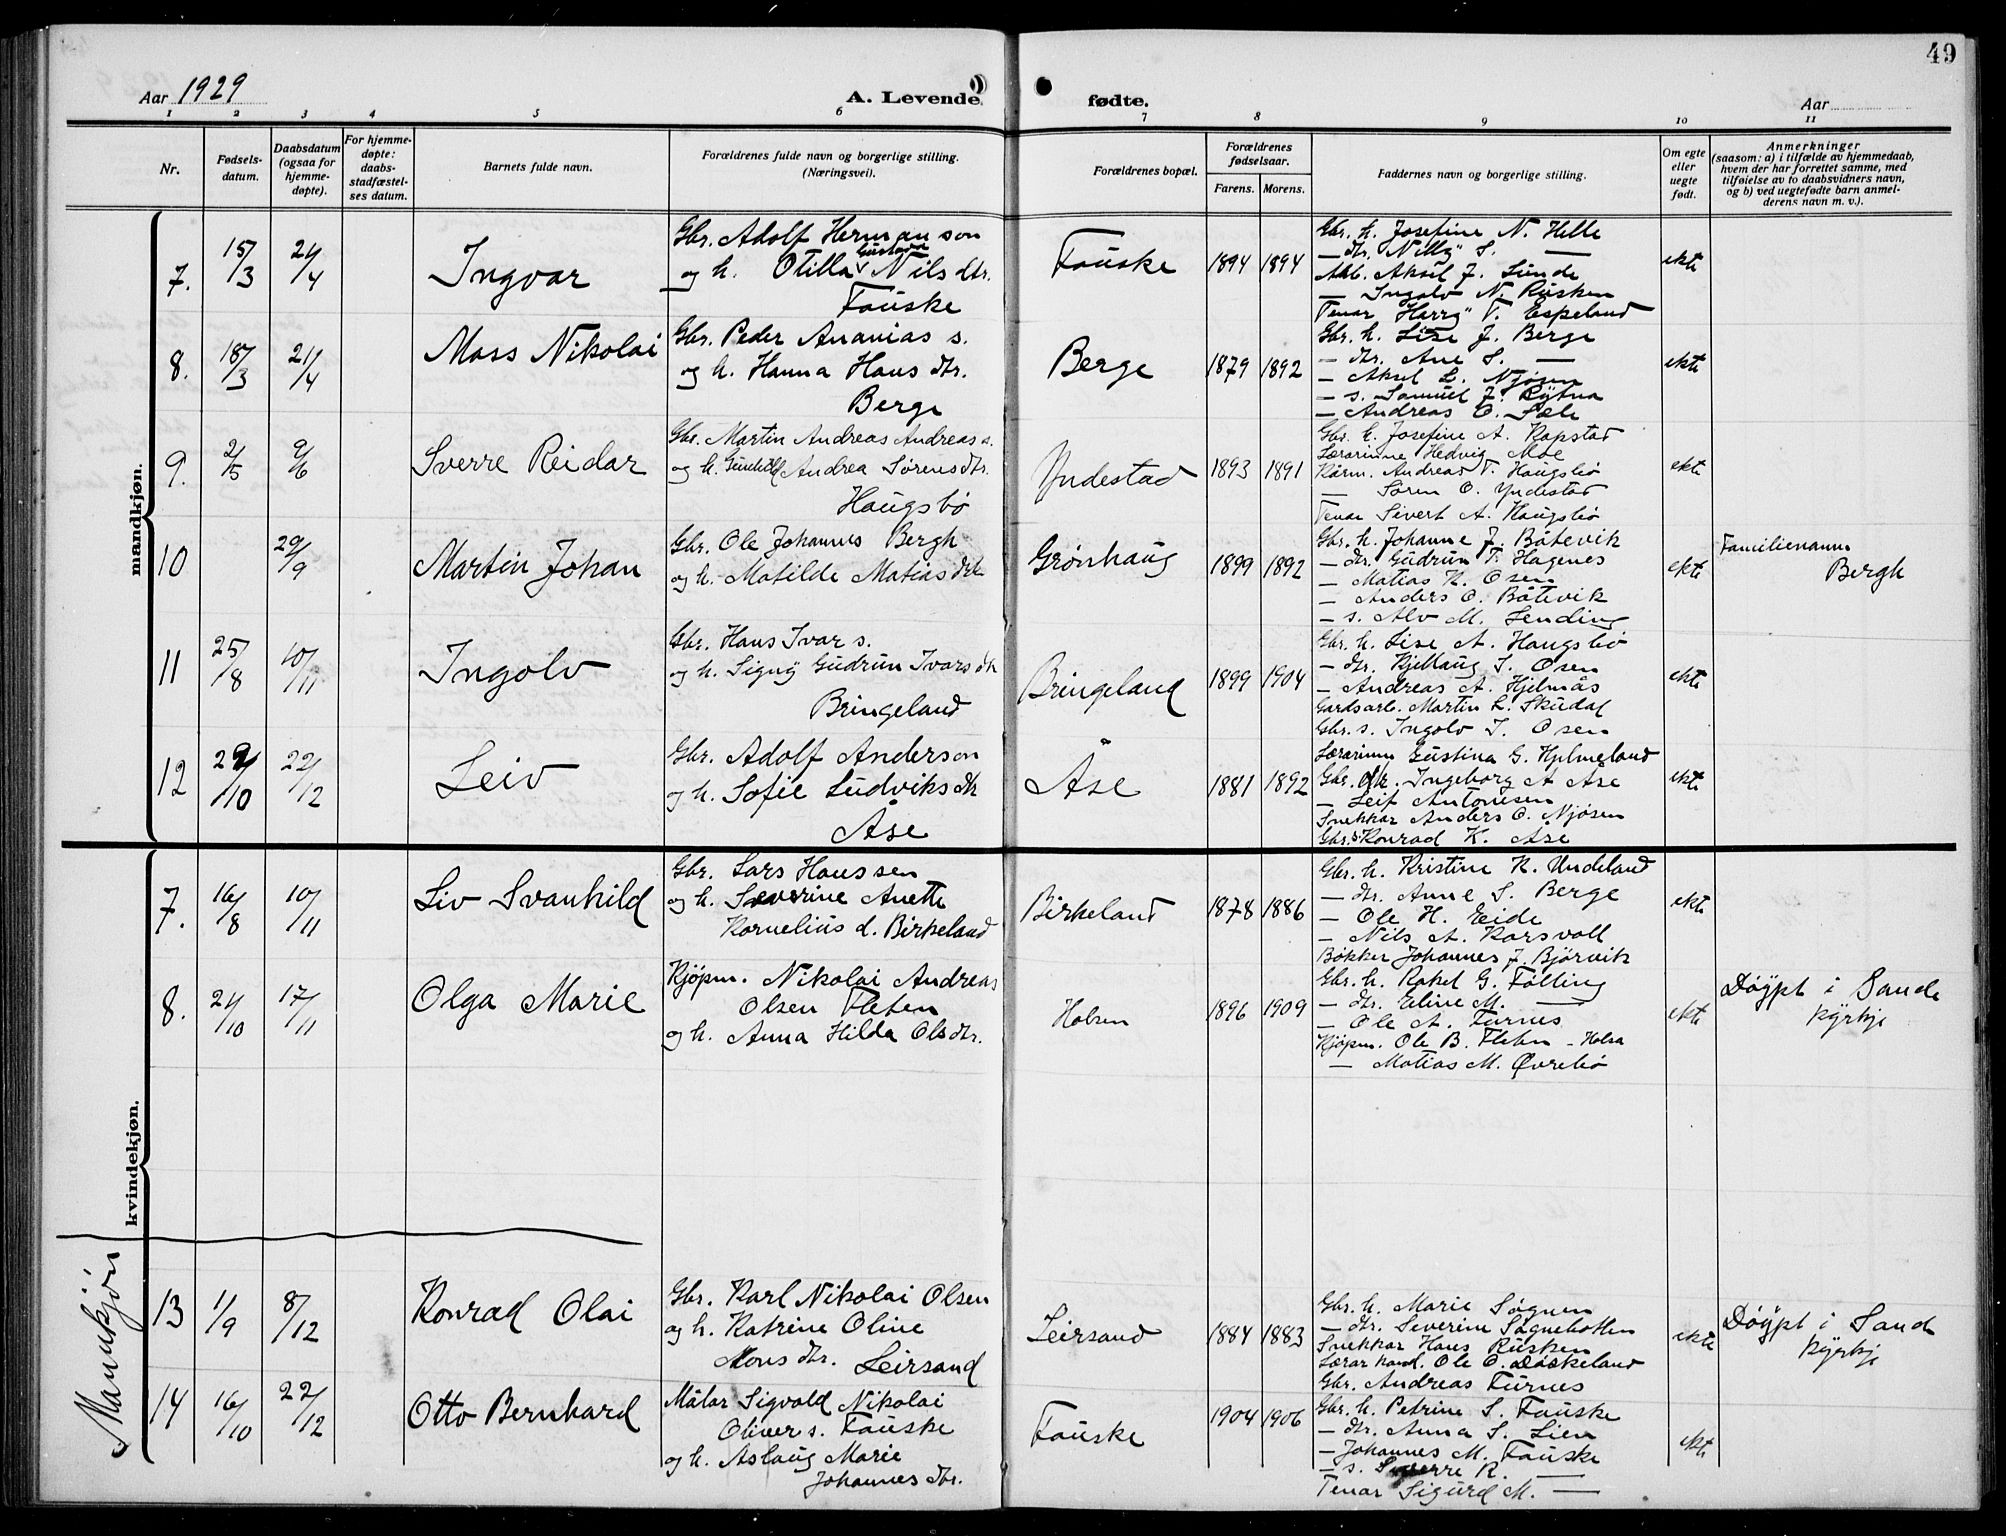 49
Aar 1929
A. Levende fødte.
Aar
1 2 3 4 5 6 7 8 9 10 11
Nr.
Fødsels-
datum.
Daabsdatum
(ogsaa for
hjemme-
døpte).
For hjemme-
døpte:
daabs-
stadfæstel-
ses datum.
Barnets fulde navn.
Forældrenes fulde navn og borgerlige stilling.
(Næringsvei).
Forældrenes bopæl.
Forældrenes
fødselsaar.
Farens. Morens.
Faddernes navn og borgerlige stilling.
Om egte
eller
uegte
født.
Anmerkninger
(saasom: a) i tilfælde av hjemmedaab,
hvem der har forrettet samme, med
tilføielse av to daabsvidners navn,
og b) ved uegtefødte barn anmel-
derens navn m. v.).
mandkjøn.
7. 15/3 21/4 Ingvar
Gbr. Adolf Hermanson
og h. Otilla Gustava Nilsdtr.
Fauske
Fauske 1894 1894
Gbr. h. Josefine N. Helle
— dtr. Nilly S. —
Arb. Aksel J. Sunde
— Ingolv N. Rusken
Tenar Harry T. Espeland
ekte
8. 18/3 21/4 Mass Nikolai
Gbr. Peder Ananias s.
og h. Hanna Hans dtr.
Berge
Berge 1879 1892
Gbr. h. Lise J. Berge
— dtr. Ane S. —
— Aksel L. Njøsen
— s. Samuel J.
— Andreas O. Sæle
ekte
9. 2/5 9/6 Sverre Reidar
Gbr. Martin Andreas Andreas s.
og h. Gunhild Andrea Sørensdtr.
Haugsbø
Yndestad 1893 1891
Gbr. h. Josefine A. Kapstad
Lærarinne Hedvig Moe
Kårm. Andreas T. Haugsbø
— Søren O. Yndestad
Tenar Sivert A. Haugsbø
ekte
10 29/9 Martin Johan
Gbr. Ole Johannes Bergh
og h. Matilde Matias dtr
Grønhaug 1899 1892
Gbr. h. Johanne J. Båtevik
— dtr. Gudrun T. Hagenes
— Matias K. Osen
— Anders O. Båtevik
— s. Alv M. Sending
ekte
Familienamn
Bergh
11 25/8 10/11 Ingolv
Gbr. Hans Ivar s.
og h. Signy Gudrun Ivars dtr
Bringeland
Bringeland 1899 1904
Gbr. h. Lise A. Haugsbø
— dtr. Kjellaug I. Osen
— Andreas A. Hjelmås
Gardsarb. Martin L. Skudal
Gbr. s. Ingolv I. Osen
ekte
12 29/10 22/12 Leiv
Gbr. Adolf Anderson
og h. Sofie Ludviks dtr
Åse
Åse 1881 1892
Lærarinne Gustina G. Hjelmeland
Gbr. dtr. Ingeborg A Åse
— Leif Antonsen
Snekkar Anders O. Njøsen
Gbr. s. Konrad K. Åse
ekte
kvindekjøn.
7. 16/8 10/11 Liv Svanhild
Gbr. Lars Hanssen
og h. Severine Anette
Kornelius d. Birkeland
Birkeland 1878 1886
Gbr. h. Kristine K. Undeland
— dtr. Anne S. Berge
— Ole H. Eide
— Nils A. Karsvoll
Bøkker Johannes J. Bjørvik
ekte
8. 21/10 17/11 Olga Marie
Kjøpm. Nikolai Andreas
Olsen Fleten
og h. Anna Hilda Olsdtr.
Holsen 1896 1909
Gbr. h. Rakel G. Fölling
— dtr. Eline M. —
— Ole A. Furnes
Kjöpm. Ole B. Fleten - Holsa
— Matias M. Øvrebø
ekte
Døypt i Sande
kyrkje
Mannkjøn
13 1/9 8/12 Konrad Olai
Gbr. Karl Nikolai Olsen
og h. Katrine Oline
Mons dtr. Leirsand
Leirsand 1884 1883
Gbr. h. Marie Søgnen
— dtr. Severine Søgnebotten
Snekkar Hans Rusken
Lærar kand. Ole O. Dåskeland
Gbr. Andreas Furnes
ekte
Døypt i Sand
kyrkje
14 16/10 22/12 Otto Bernhard
Målar Sigvald Nikolai
Oliver s. Fauske
og h. Aslaug Marie
Johannes dtr.
Fauske 1904 1906
Gbr. h. Petrine S. Fauske
— dtr. Anna S. Lien
— Johannes M. Fauske
— s. Sverre R. —
Tenar Sigurd M. —
ekte